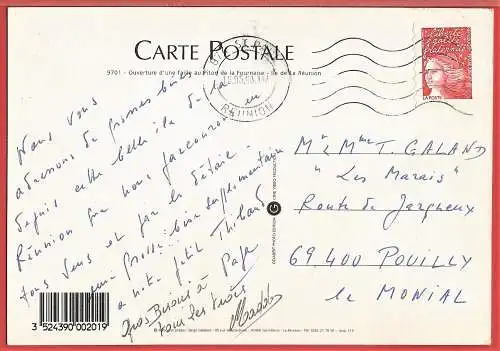 CARTE POSTALE
9701 - Ouverture d'une faille au Piton de la Fournaise - Ile de La Réunion
RÉUNION
Liberté
égalité
fraternité
LA POSTE
Nous vous
adressons de grosses bises
depuis cette belle île de la
Réunion que nous parcourons en
tous sens et par le détail.
une grosse bise supplémentaire
à notre petit Thibaud
Gros Bisous à
tous les trois
Papy
M & Mme T. GALAND
"Les Marais"
Route de Jargneux
69400 POUILLY
le MONIAL
G
3 524390 002019